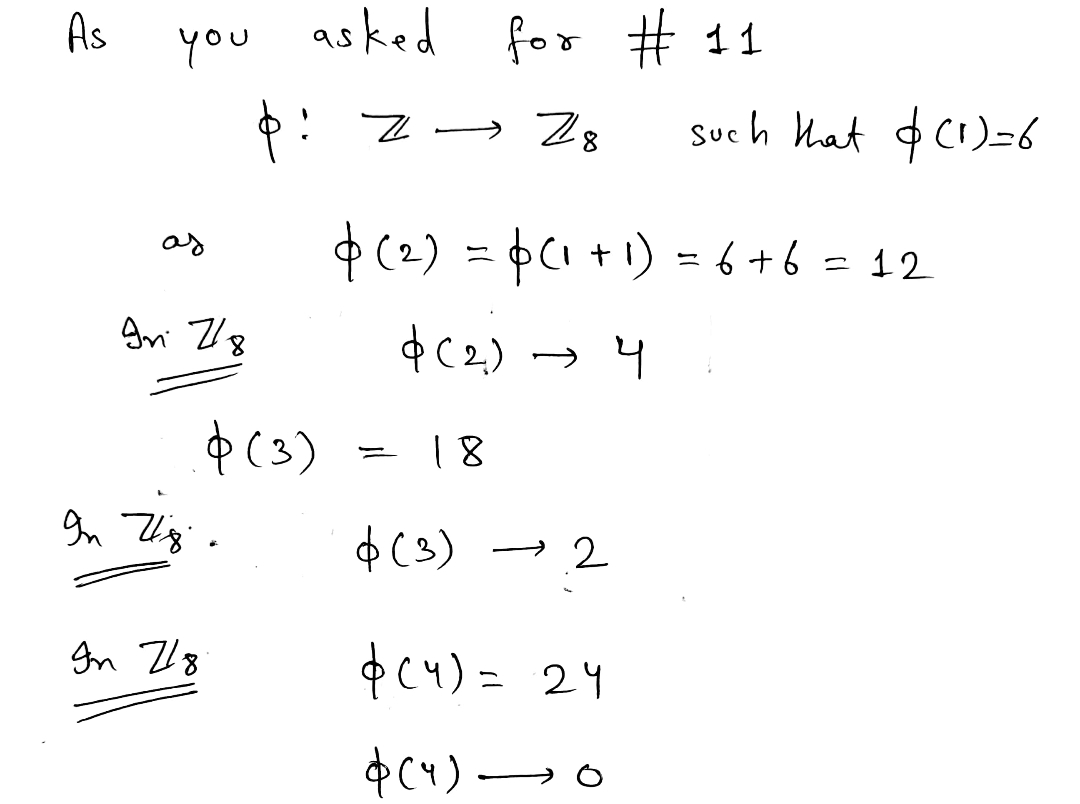 As you asked for # 11
ϕ: ℤ → ℤ₈ such that ϕ(1)=6
as ϕ(2) = ϕ(1+1) = 6+6 = 12
In ℤ₈ ϕ(2) → 4
ϕ(3) = 18
In ℤ₈. ϕ(3) → 2
In ℤ₈ ϕ(4) = 24
ϕ(4) → 0